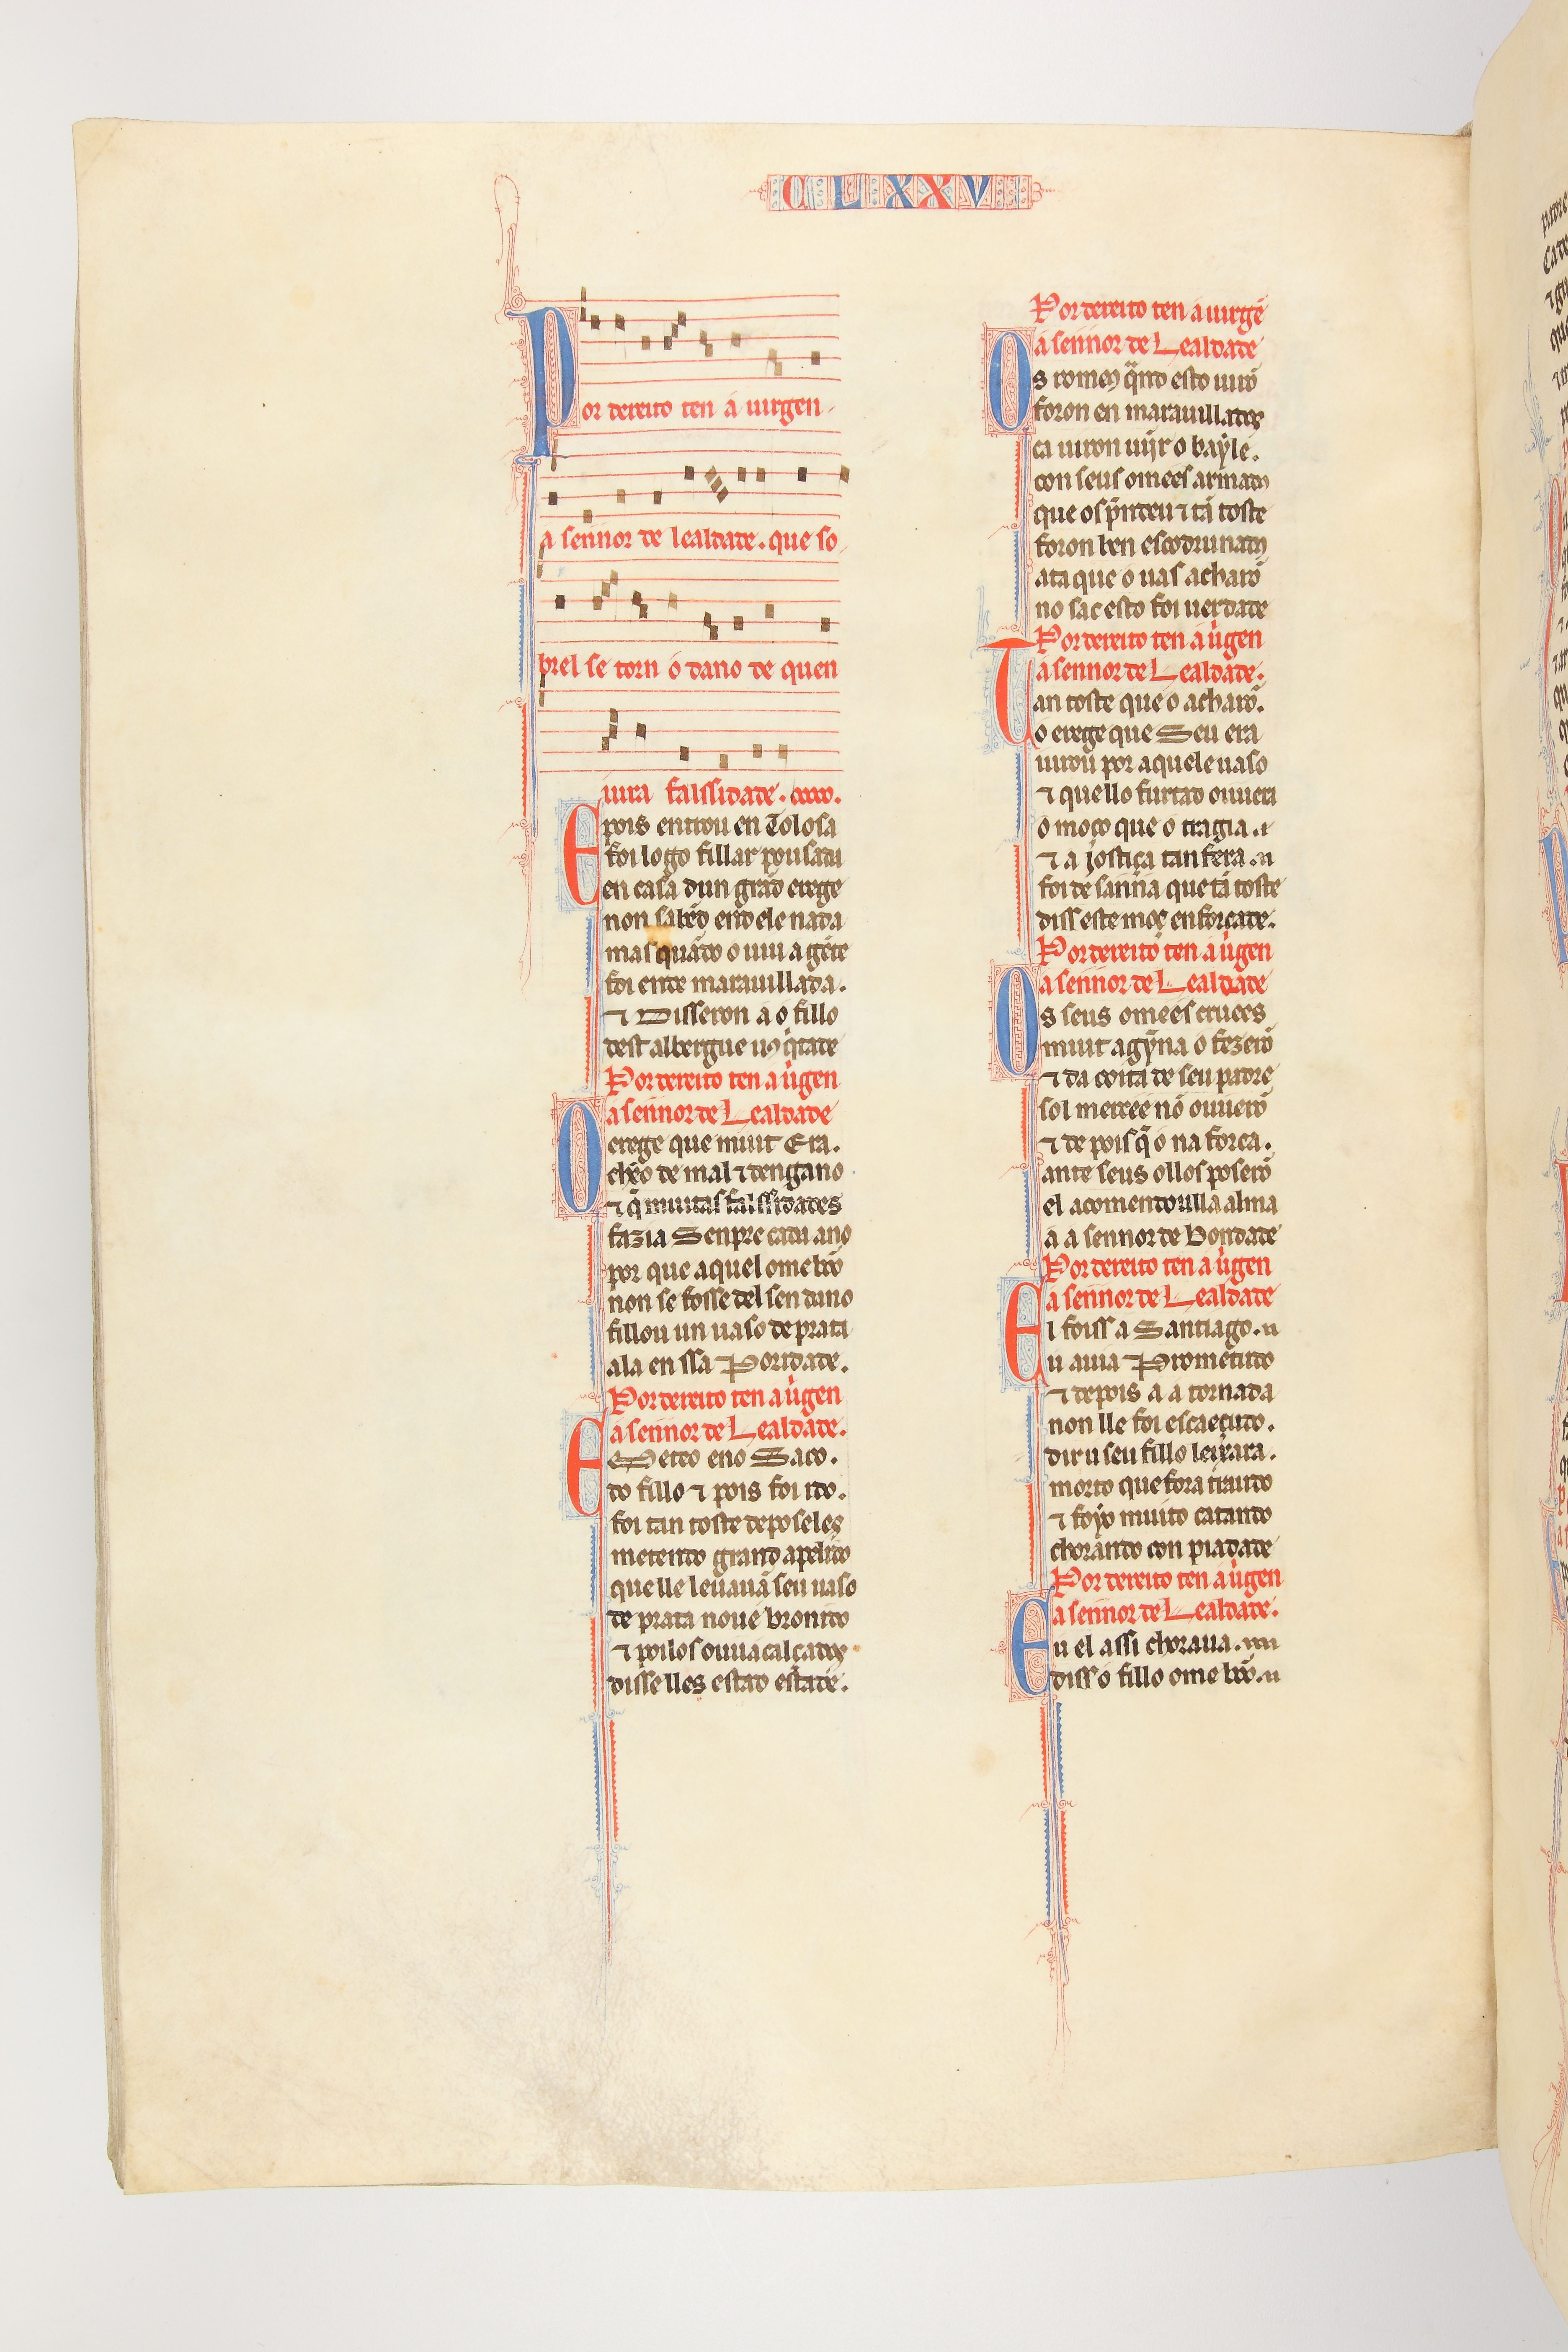 CLXXV
Por dereito ten a uirgen
a sennor de lealdade. que so
brel se torn o dano de quen
iura falssidade.
E pois entrou en Tolosa
foi logo fillar pousada
en casa dun grãd erege
non sabẽd endele nada
mas quãdo o uiu a gẽte
foi ende marauillada.
⁊ Disseron a o fillo
dest albergue uꝯ q̇tade
Por dereito ten a uꝰgen
a sennor de Lealdade
O erege que muit Era.
chẽo de mal ⁊ dengano
⁊ q̄ muitas falssidades
fazia Senpre cada ano
por que aquel ome bõo
non se fosse del sen dano
fillou un uaso de prata
ala en ssa Poridade.
Por dereito ten a uꝰgen
a sennor de Lealdade.
E Meteo eno Saco.
do fillo ⁊ pois foi ido.
foi tan toste depos eles
metendo grand apelido
que lle leuauã seu uaso
de prata noue bronido
⁊ poilos ouua calçados
disselles estad estade.
Por dereito ten a uirgẽ
a sennor de Lealdade
Os romeꝯ q̄ndo esto uirõ
foron en marauillados
ca uiron uĩjr o bayle.
con seus omees armados
que os p̃ndeu ⁊ tã toste
foron ben escodrunados
ata que o uas acharõ
no sac esto foi uerdade
Por dereito ten a uꝰgen
a sennor de Lealdade.
Tan toste que o acharõ.
o erege que Seu era
iurou por aquele uaso
⁊ quello furtad ouuera
o moço que o tragia.
⁊ a jostiça tan fera.
foi de sanna que tã toste
diss este moç enforcade.
Por dereito ten a uꝰgen
a sennor de Lealdade
Os seus omees cruees
muit agỹna o fezerõ
⁊ da coita de seu padre
sol mercee nõ ouuerõ
⁊ de pois q̄ o na forca.
ante seus ollos poserõ
el acomendoulla alma
a a sennor de Bondade
Por dereito ten a uꝰgen
a sennor de Lealdade
El foiss a Santiago.
u auia Prometudo
⁊ depois a a tornada
non lle foi escaeçudo.
dir u seu fillo leixara.
morto que fora traudo
⁊ foyo muito catando
chorando con piadade
Por dereito ten a uꝰgen
a sennor de Lealdade.
Eu el assi choraua.
diss o fillo ome bõo.